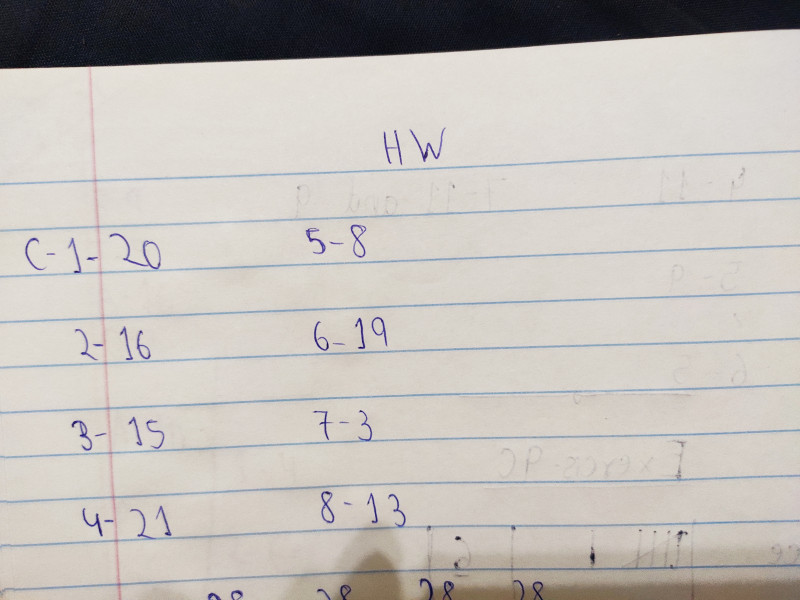 HW
C-1-20 5-8
2-16 6-19
3-15 7-3
4-21 8-13
28 28 28 28